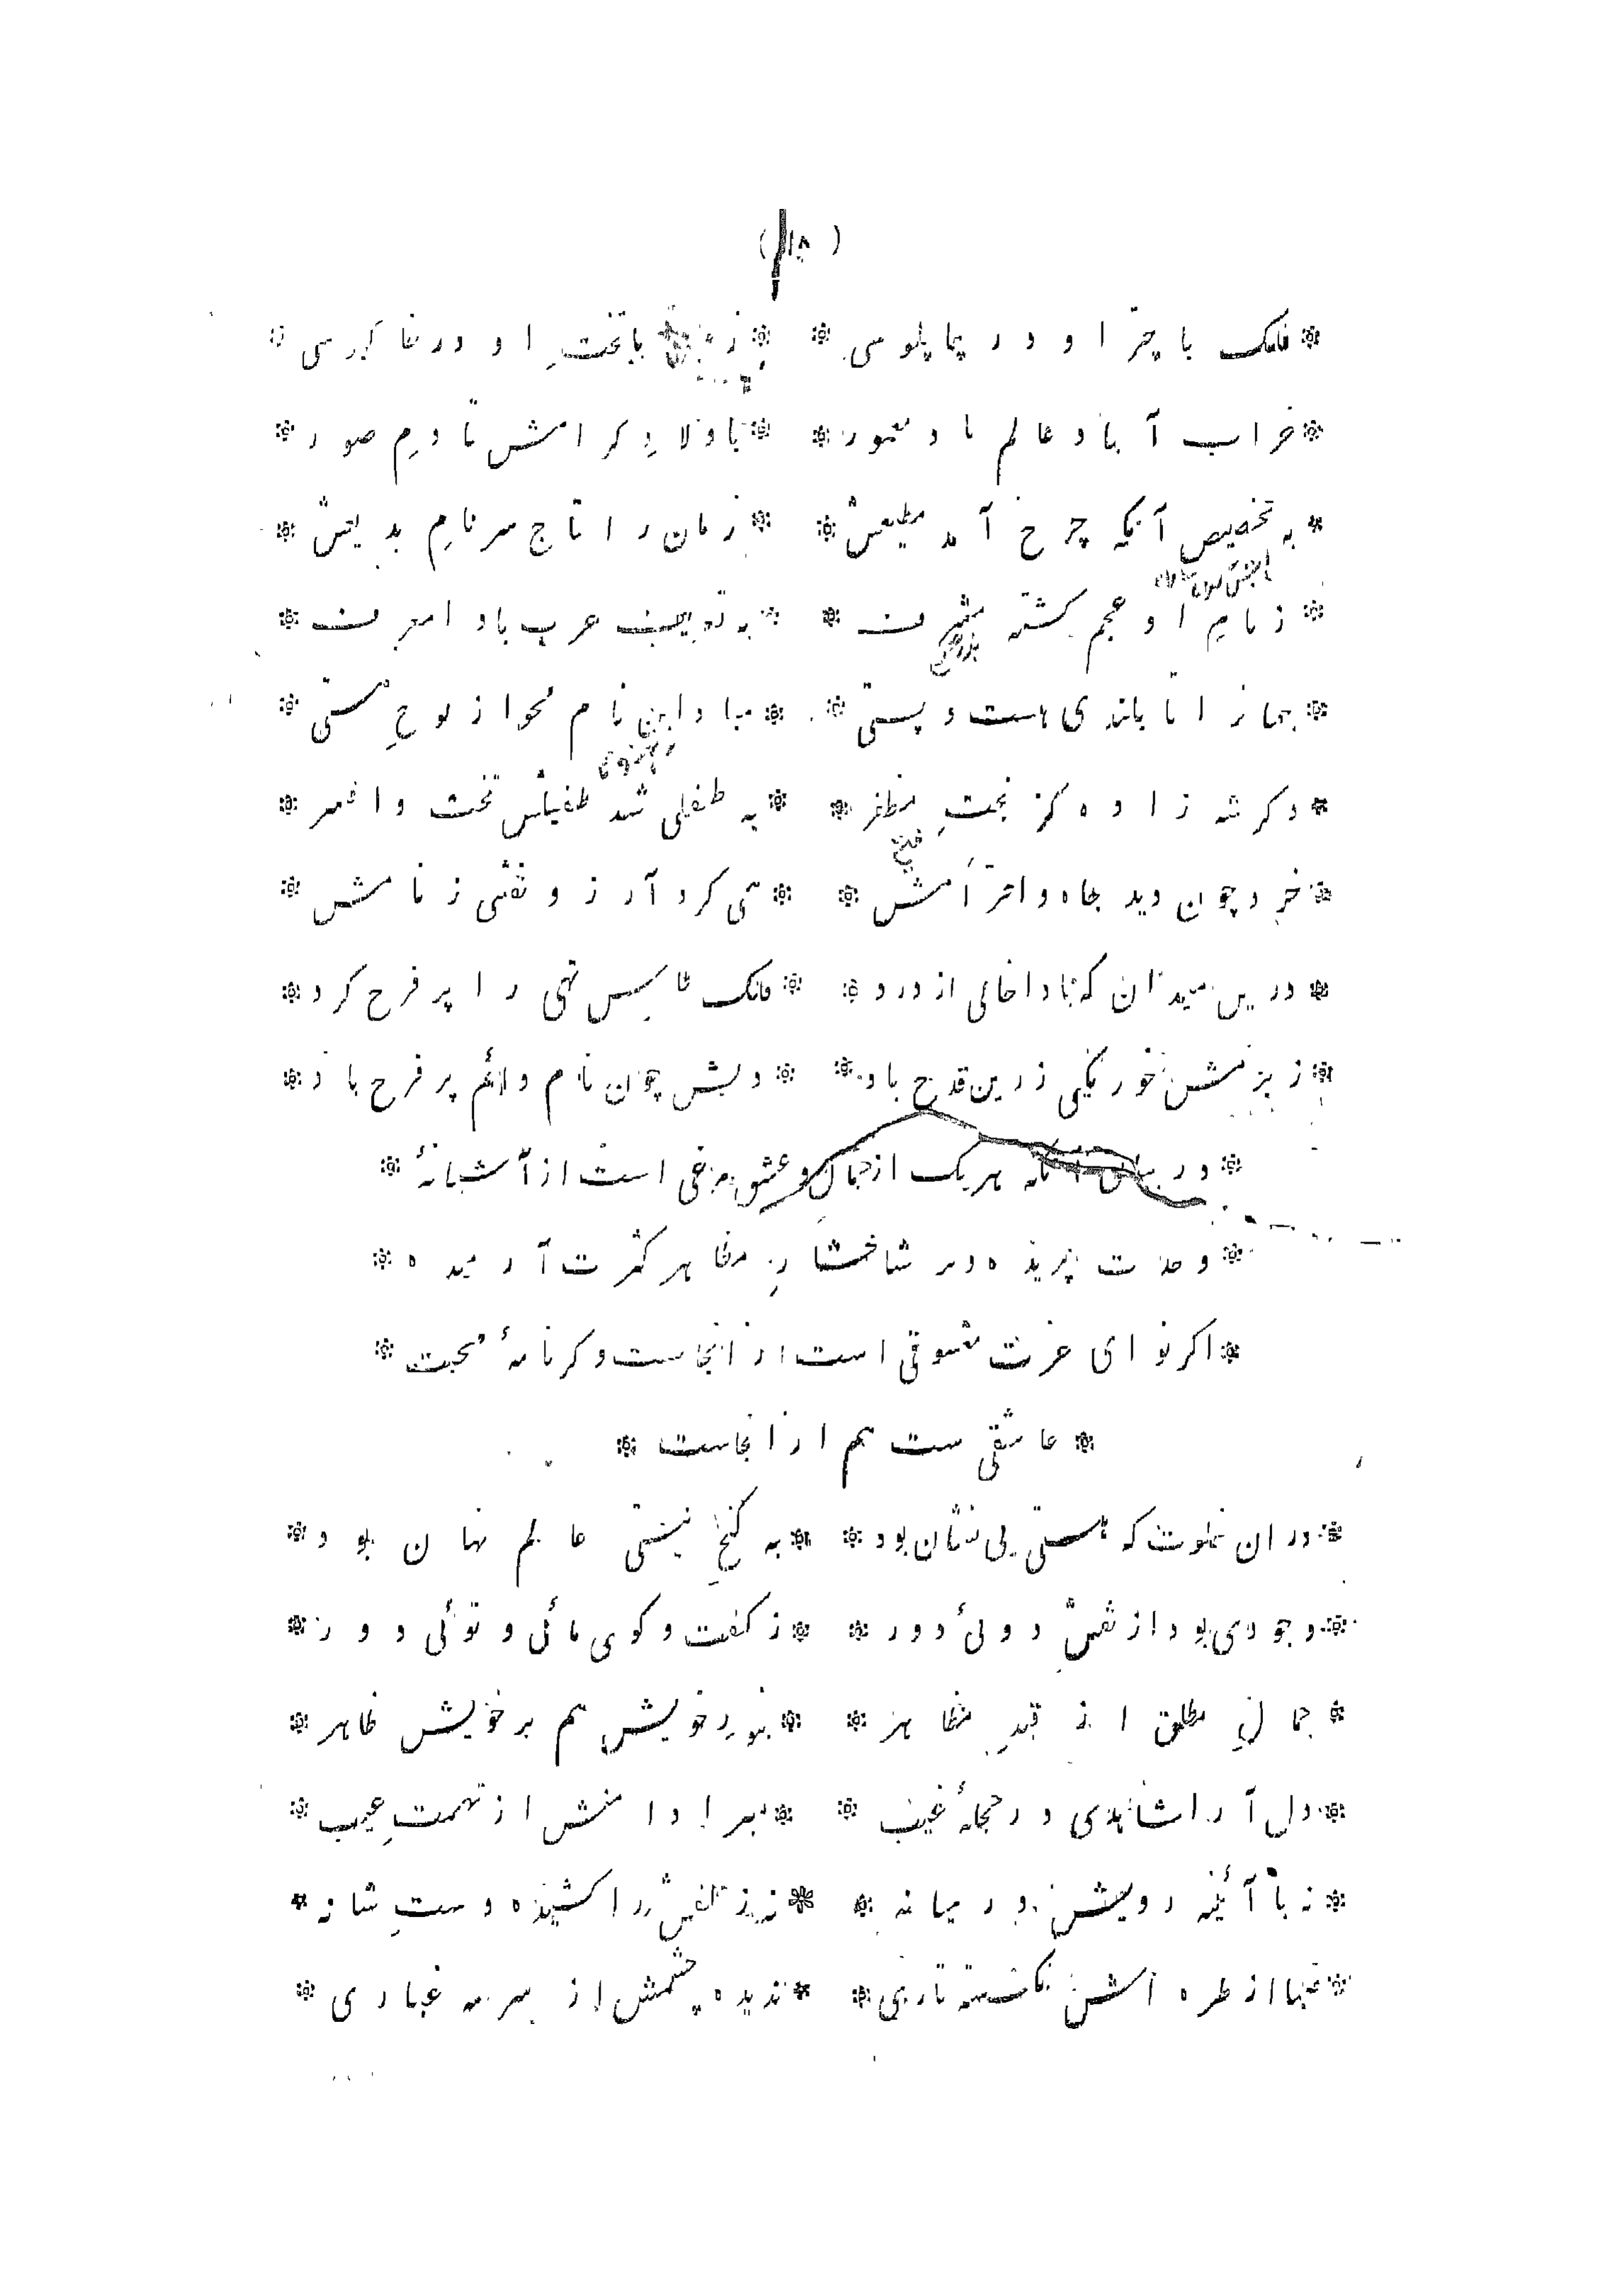 ( ۱۸ )
* فلک با چتر او در چاپلوسی * * ز با تخت او در خاکبوسی *
* خراب آباد عالم باد معمور * * باولادِ کرامش تا دمِ صور *
* به تخصیص آنکه چرخ آمد مطیعش * * زمان را تاج سر نامِ بدیعش *
* ز نامِ او عجم گشته مشرف * * به توصیف عرب باد امعرف *
* جهانرا تا بلندی هست و پستی * * مبادا این نام محو از لوحِ هستی *
* دگر شه زاده کز بختِ مظفر * * به طفلی شد طفیلش تخت و افسر *
* خرد چون دید جاه و احترامش * * همی کرد آرزو نقشی ز نامش *
* درین میدان که بادا خالی از درد * * فلک تا سین تهی را پر فرح کرد *
* ز بزمش خور یکی زرین قدح باد * * دلش چون نام دائم پر فرح باد *
* در بیان آنکه هریک از جمال و عشق مرغی است از آشیانهٔ *
* وحدت پریده و بر شاخسارِ مظاهر کثرت آرمیده *
* اگر نوای عزت معشوقی است از آنجاست و گر نالهٔ محبت *
* عاشقی ست هم از آنجاست *
* در ان خلوت که هستی بی نشان بود * * به کنجِ نیستی عالم نهان بود *
* وجودی بود از نقش دوئی دور * * ز گفت و گوی مائی و توئی دور *
* جمالِ مطلق از قیدِ مظاهر * * بنورِ خویش هم بر خویش ظاهر *
* دل آرا شاهدی در حجلهٔ غیب * * مبرا دامنش از تهمتِ عیب *
* نه با آئینه رویش در میانه * * نه زلفش را کشیده دستِ شانه *
* صبا از طره اش نگسسته تاری * * ندیده چشمش از سرمه غباری *